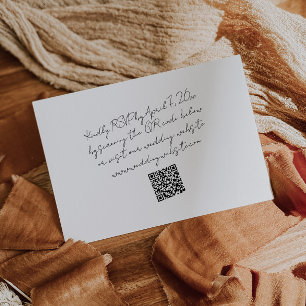 Kindly RSVP by April 7, 20xx
by scanning the QR code below
or visit our wedding website
www.weddingwebsite.com